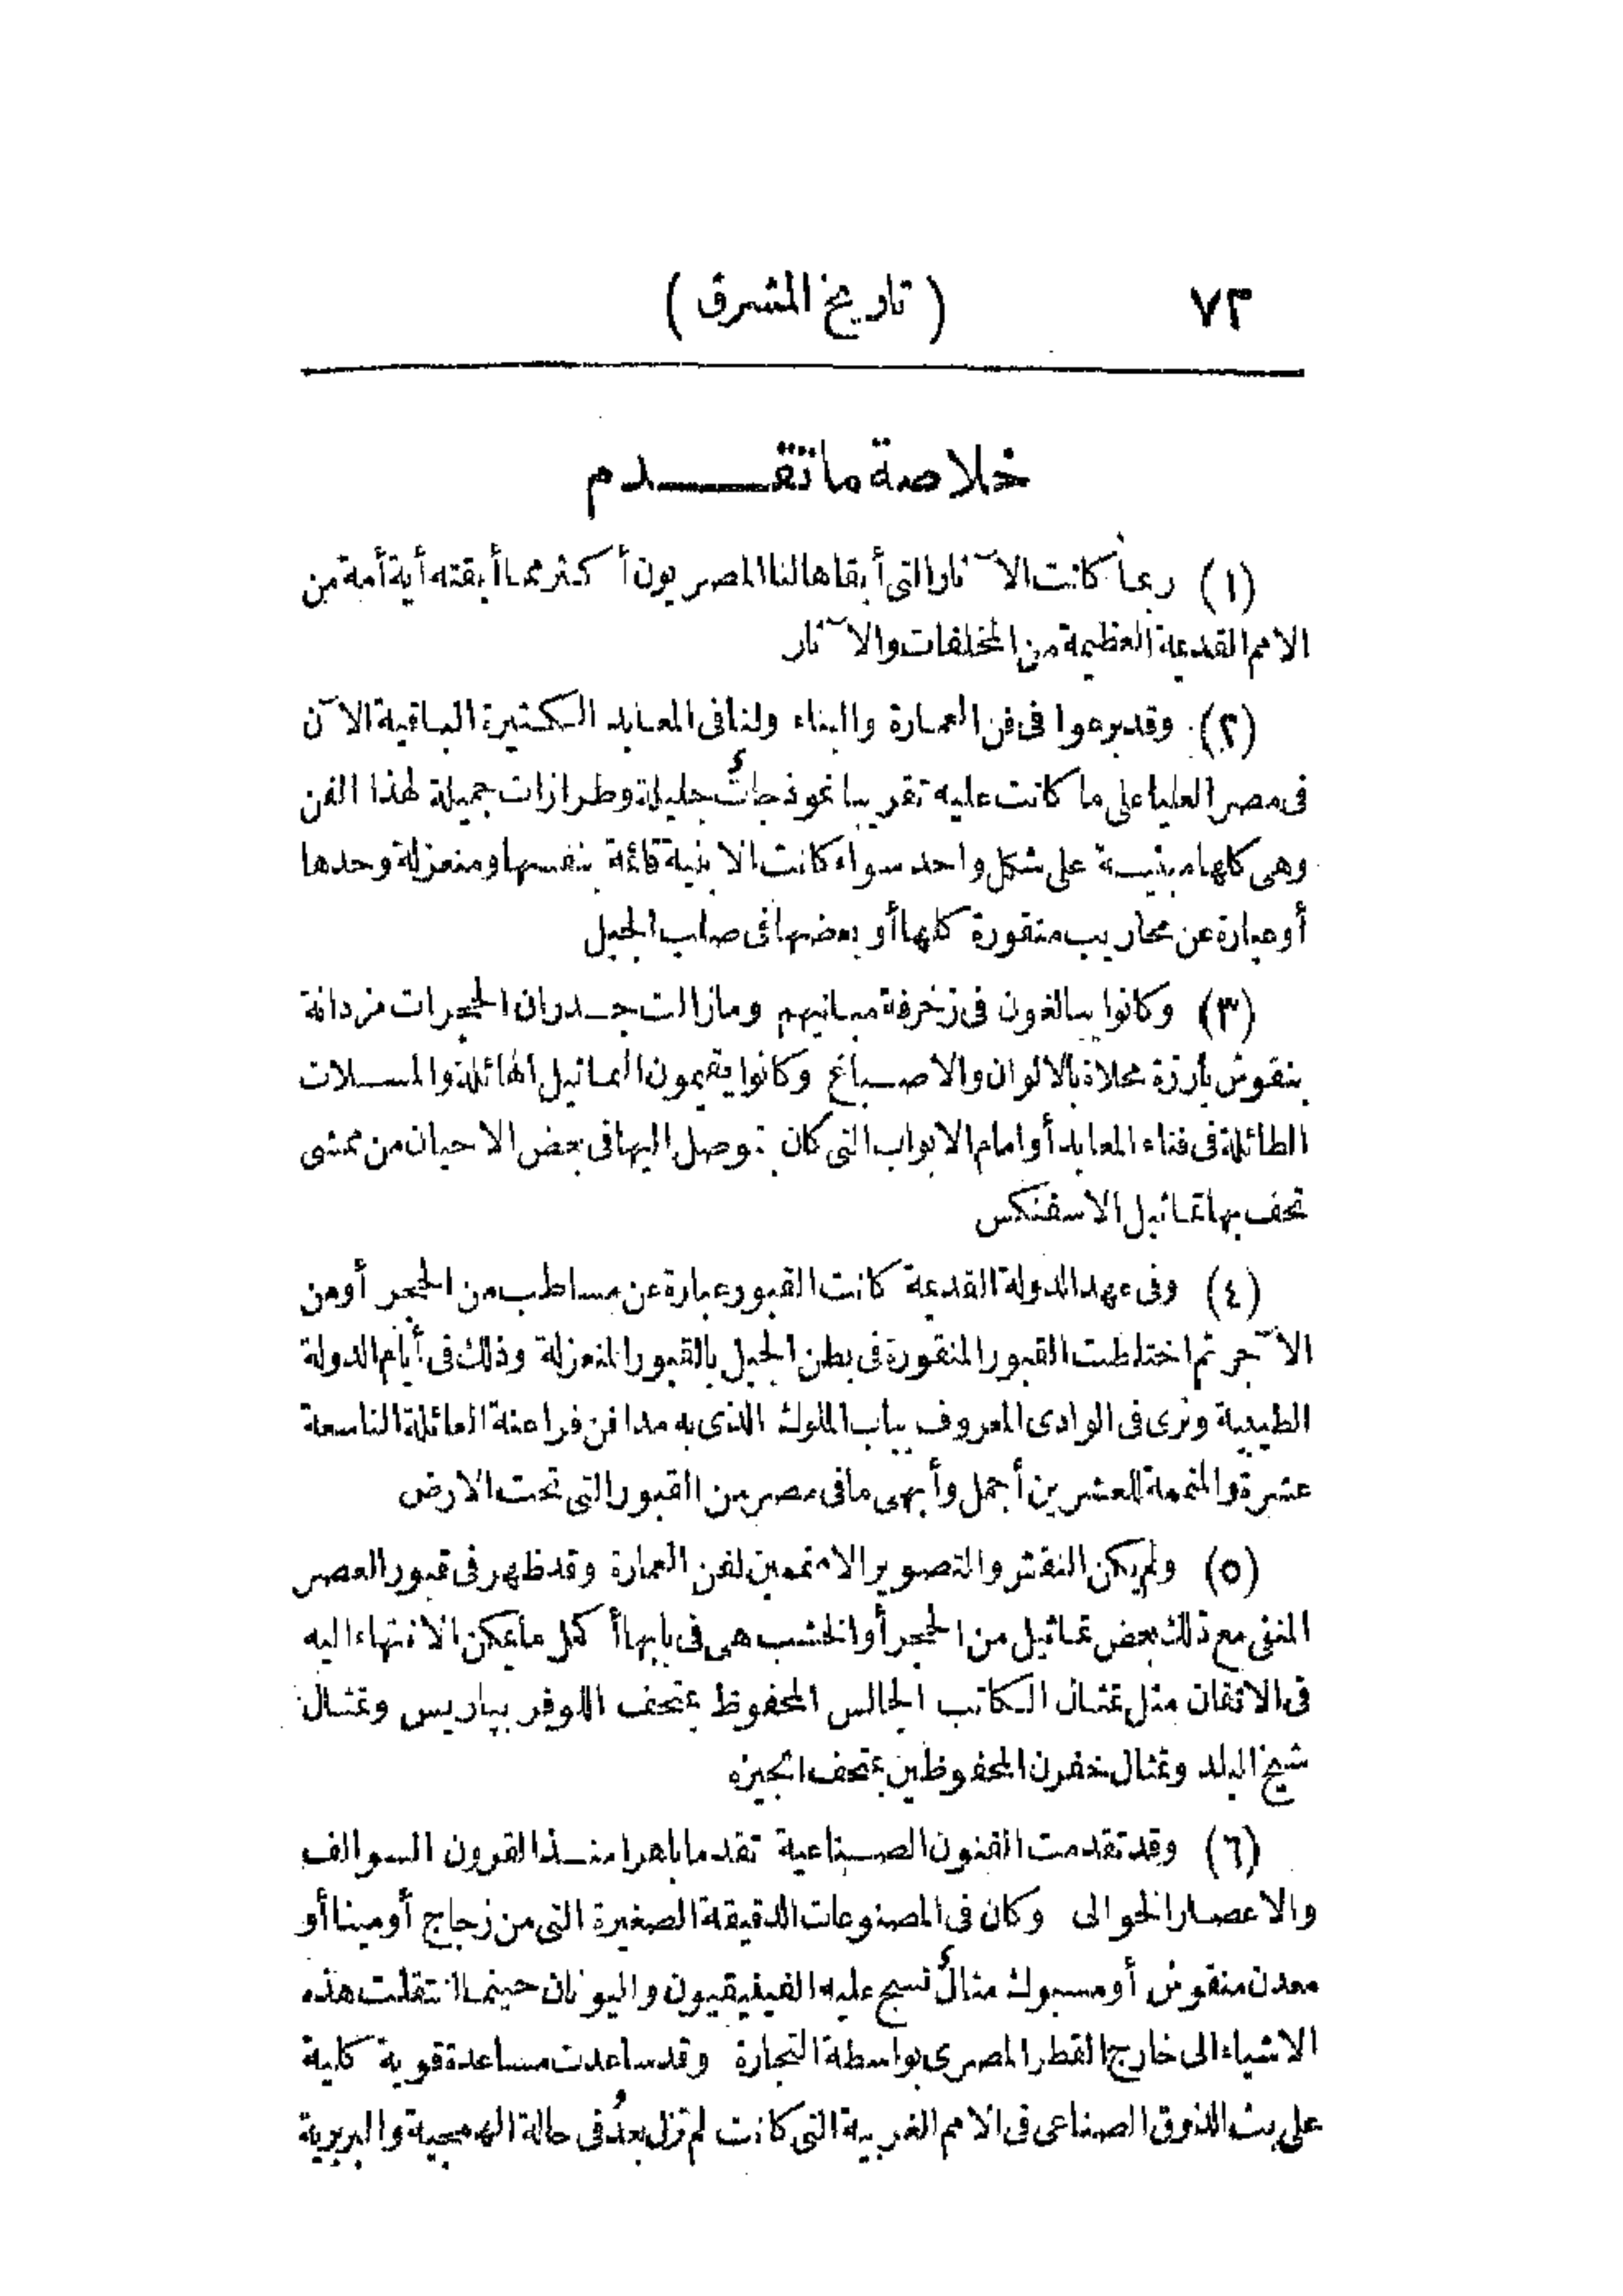 ٧٣ ( تاريخ المشرق )
خلاصة ما تقدم
(١) ربما كانت الآثار التى أبقاها لنا المصريون أكثر مما أبقته أية أمة من
الامم القديمة العظيمة من المخلفات والآثار
(٢) وقد برعوا فى فن العمارة والبناء ولنا فى المعابد الكثيرة الباقية الآن
فى مصر العليا على ما كانت عليه تقريبا نموذجاتٌ جليلة وطرازات جميلة لهذا الفن
وهى كلها مبنية على شكل واحد سواء كانت الابنية قائمة بنفسها ومنعزلة وحدها
أو عبارة عن محاريب منقورة كلها أو بعضها فى صلب الجبل
(٣) وكانوا يبالغون فى زخرفة مبانيهم ومازالت جدران الحجرات مزدانة
بنقوش بارزة محلاة بالالوان والاصباغ وكانوا يقيمون التماثيل الهائلة والمسلات
الطائلة فى فناء المعابد أوامام الابواب التى كان يوصل اليها فى بعض الاحيان من ممشى
تحف بها تماثيل الاسفنكس
(٤) وفى عهد الدولة القديمة كانت القبور عبارة عن مساطب من الحجر أومن
الآجر ثم اختلطت القبور المنقورة فى بطن الجبل بالقبور المنعزلة وذلك فى أيام الدولة
الطيبية ونرى فى الوادى المعروف بباب الملوك الذى به مدافن فراعنة العائلة التاسعة
عشرة والمتممة للعشرين أجمل وأبهى ما فى مصر من القبور التى تحت الارض
(٥) ولم يكن النقش والتصوير الا متممين لفن العمارة وقد ظهر فى قبور العصر
المنفى مع ذلك بعض تماثيل من الحجر أوالخشب هى فى بابها أكمل ما يمكن الانتهاء اليه
فى الاتقان مثل تمثال الكاتب الجالس المحفوظ بمتحف اللوفر بباريس وتمثال
شيخ البلد وتمثال خفرن المحفوظين بمتحف الجيزه
(٦) وقد تقدمت الفنون الصناعية تقدما باهرا منذ القرون السوالف
والاعصار الخوالى وكان فى المصنوعات الدقيقة الصغيرة التى من زجاج أومينا أو
معدن منقوش أومسبوك مثالٌ نسج عليه الفينيقيون واليونان حينما انتقلت هذه
الاشياء الى خارج القطر المصرى بواسطة التجارة وقد ساعدت مساعدة قوية كلية
على بث الذوق الصناعى فى الامم الغربية التى كانت لم تزل بعدُ فى حالة الهمجية والبربرية